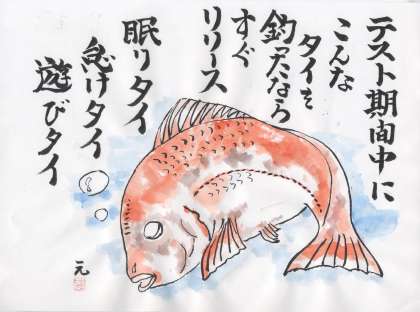 テスト期间中に
こんな
タイを
釣ったなら
すぐ
リリース
眠りタイ
怠けタイ
遊びタイ
元